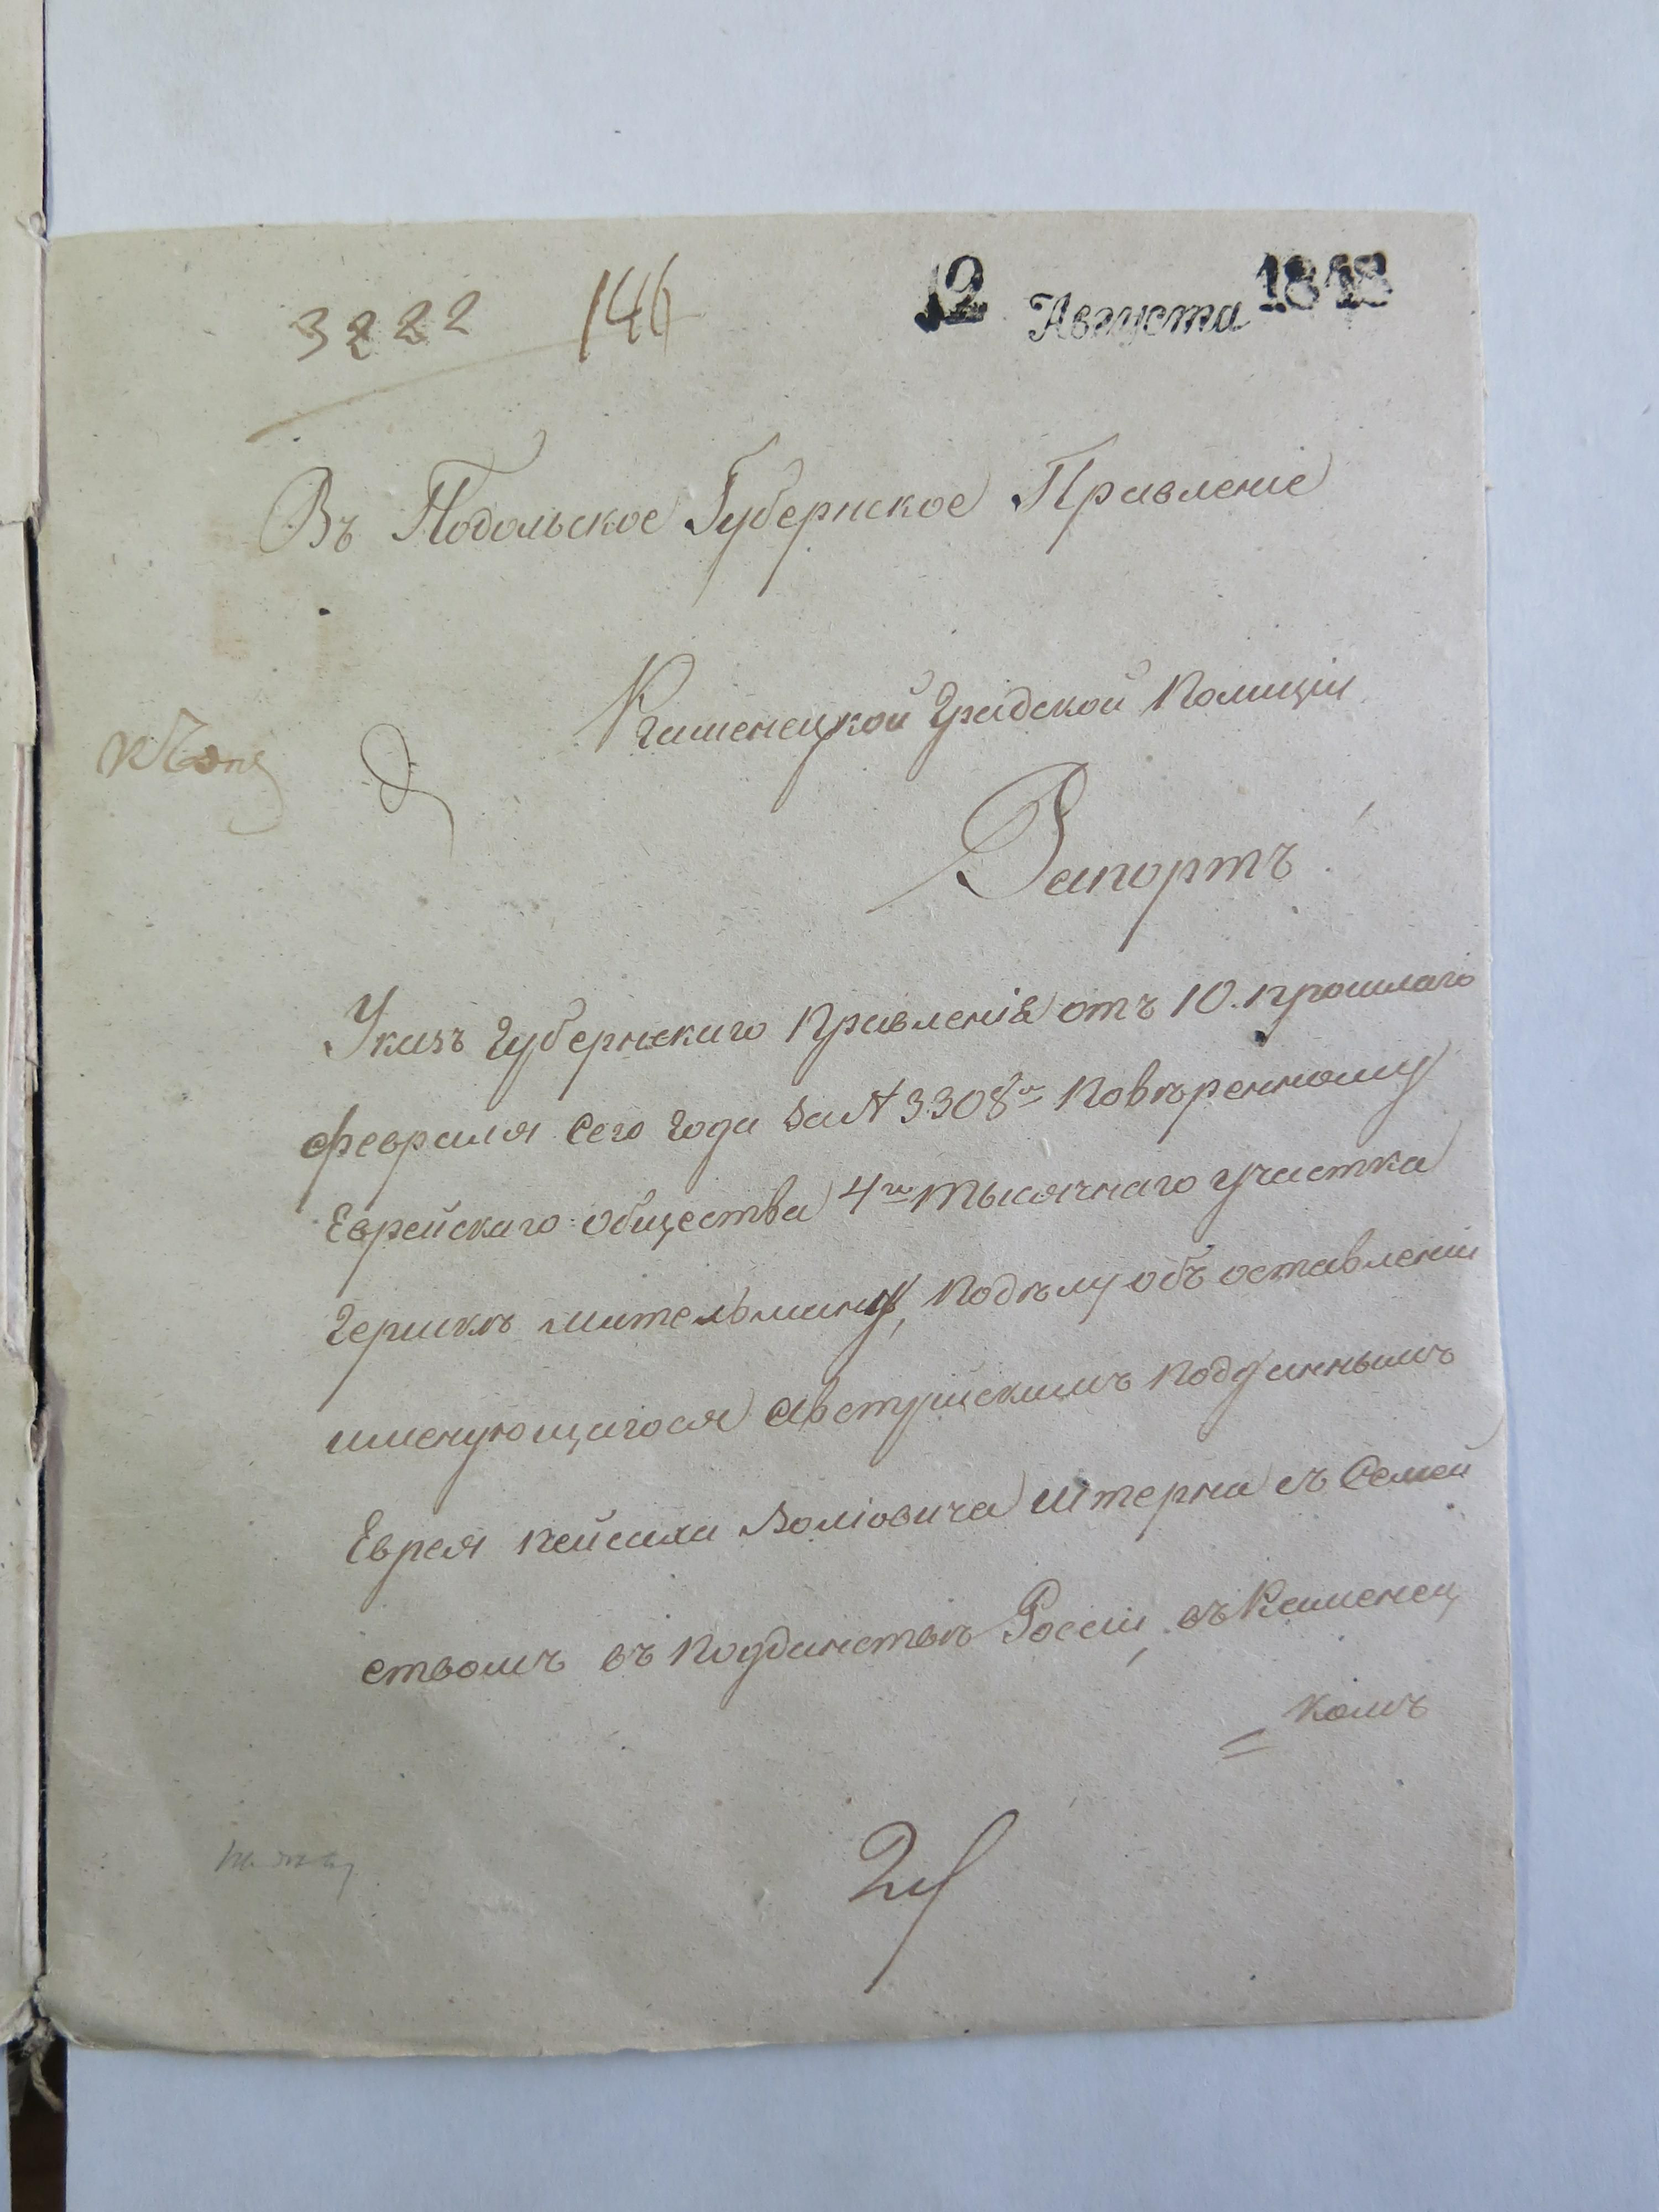 3222 146
12 Августа 1848
Въ Подольское Губернское Правленіе
Каменецкой Градской Полиціи
Рапортъ
Указъ Губернскаго Правленія отъ 10. прошлаго
февраля сего года за N 3308м повѣренному
Еврейскаго общества 4го тысячнаго участка
Гершкѣ Мительману, подѣлу объ оставленіи
именующагося австрійскимъ подданнымъ
Еврея Пейсаха Штерна съ Семей
ствомъ въ подданствѣ Россіи, въ Каменец
= комъ